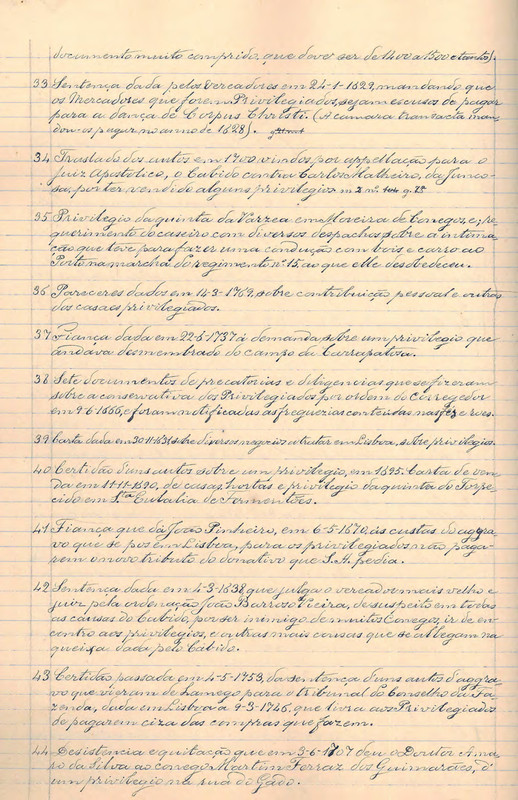 documento muito comprido, que deve ser de 1400 a 1500 e tantos).
33 Sentença dada pelos Vereadores em 24-1-1629, mandando que
os Mercadores que forem Privilegiados, sejam escusos de pagar
para a dança de Corpus Christi. (A camara transacta man-
dou-os pagar no anno de 1628).
34 Traslado dos autos em 1700 vindos por appellação para o
Juiz Apostolico, o Cabido contra Carlos Malheiro, da Junco-
sa, por ter vendido alguns privilegios
35 Privilegio da quinta da Varzea em Moreira de Conegos, e re-
querimento do caseiro com diversos despachos sobre a intima-
ção que teve para fazer uma condução com bois e carro ao
Porto na marcha do regimento nº 15, ao que elle desobedeceu.
36 Pareceres dados em 14-3-1769, sobre contribuição pessoal e outros
dos casaes privilegiados.
37 Fiança dada em 22-5-1737 á demanda sobre um privilegio que
andava desmembrado do campo da Carrapatosa.
38 Sete documentos de precatorias e diligencias que se fizeram
sobre a conservativa dos Privilegiados por ordem do Corregedor
em 9-6-1666, e foram notificadas as freguezias conteudas nas fés e roes.
39 Carta dada em 30-11-1631 sobre diversos negocios a tratar em Lisboa, sobre privilegios.
40 Certidão d'uns autos sobre um privilegio, em 1595. Carta de ven-
da em 11-11-1590, de casas, hortas e privilegio da quinta do
cido em Sta Eulalia de Fermentões.
41 Fiança que dá João Pinheiro, em 6-5-1670, ás custas do aggra-
vo que se poz em Lisboa, para os privilegiados não paga-
rem o novo tributo do donativo que S. A. pedia.
42 Sentença dada em 4-3-1838 que julga o vereador mais velho e
juiz pela ordenação João Barroso Vieira, de suspeito em todas
as causas do Cabido, por ser inimigo de muitos Conegos, ir de en-
contro aos privilegios, e outras mais cousas que se allegam na
queixa dada pelo Cabido.
43 Certidão passada em 4-5-1753, da sentença d'uns autos d'aggra-
vo que vieram de Lamego para o tribunal do Conselho da Fa-
zenda, dada em Lisboa a 9-3-1746, que livra aos Privilegiados
de pagarem ciza das compras que fazem.
44 Desistencia e quitação que em 3-6-1707 deu o Doutor Ama-
ro da Silva ao conego Martim Ferraz dos Guimarães, d'
um privilegio na rua do Gado.